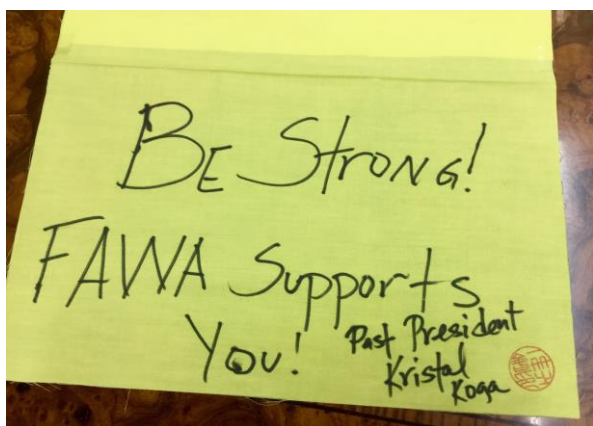 BE Strong!
FAWA Supports
You!
Past President
Kristal
Koga